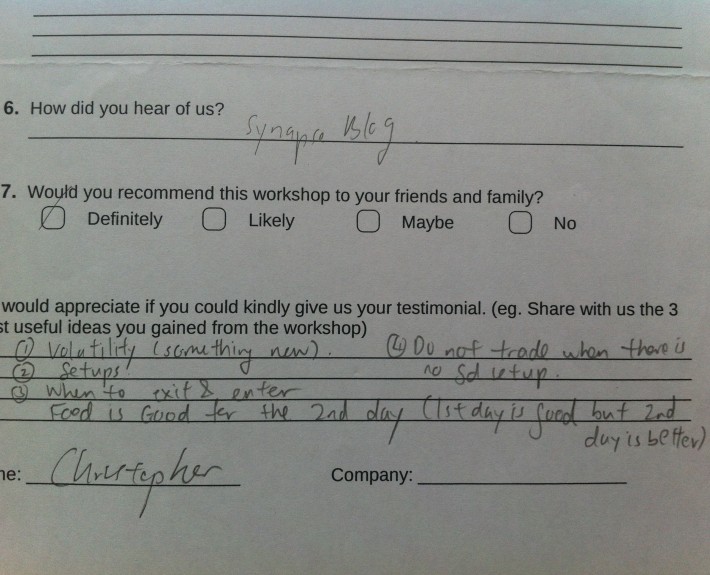 6. How did you hear of us?
Synapse Blog
7. Would you recommend this workshop to your friends and family?
Definitely Likely Maybe No
would appreciate if you could kindly give us your testimonial. (eg. Share with us the 3
st useful ideas you gained from the workshop)
① Volatility (something new). ④ Do not trade when there is
② Setups no Sd setup.
③ When to exit & enter
Food is Good for the 2nd day (1st day is good but 2nd
day is better)
ne: Christopher Company: